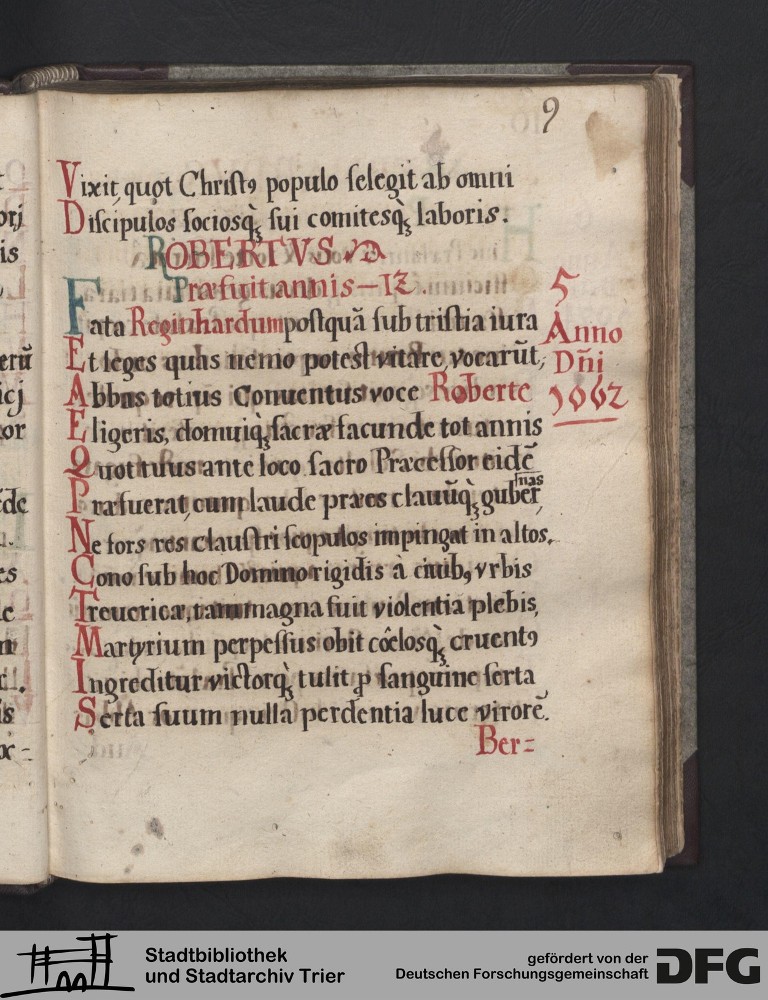 9
Vixit, quot Christꝰ populo selegit ab omni
Discipulos sociosq̀ꝫ sui comitesq̀ꝫ laboris.
ROBERTVS
Præfuit annis – 12.
Fata Reginhardum postquã sub tristia iura
Et leges quas nemo potest vitare, vocarũt,
Abbas totius Conuentus voce Roberte
Eligeris, domuiq̀ꝫ sacræ facunde tot annis
Quot tuus ante loco sacro Præcessor eidẽ
Præfuerat, cum laude præes clauũq̀ꝫ gubernas,
Ne fors res claustri scopulos impingat in altos.
Cono sub hoc Domino rigidis à ciuibꝰ vrbis
Treuericæ, tam magna fuit violentia plebis,
Martyrium perpessus obit cœ̂losq̀ꝫ cruentꝰ
Ingreditur victorq̀ꝫ tulit ꝓ sanguine serta
Serta suum nulla perdentia luce virorẽ.
Ber=
5
Anno
Dñi
1062
orj
is
erũ
icj
or
Stadtbibliothek
und Stadtarchiv Trier
gefördert von der
Deutschen Forschungsgemeinschaft
DFG